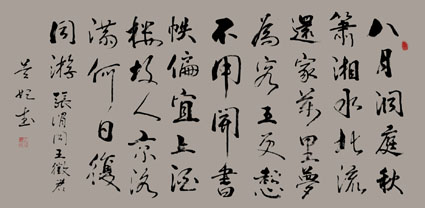 八月洞庭秋
簫湘水北流
還家萬里夢
為客五更愁
不用開書
帙偏宜上酒
樓故人京洛
滿何日復
同游 張謂同王徵君